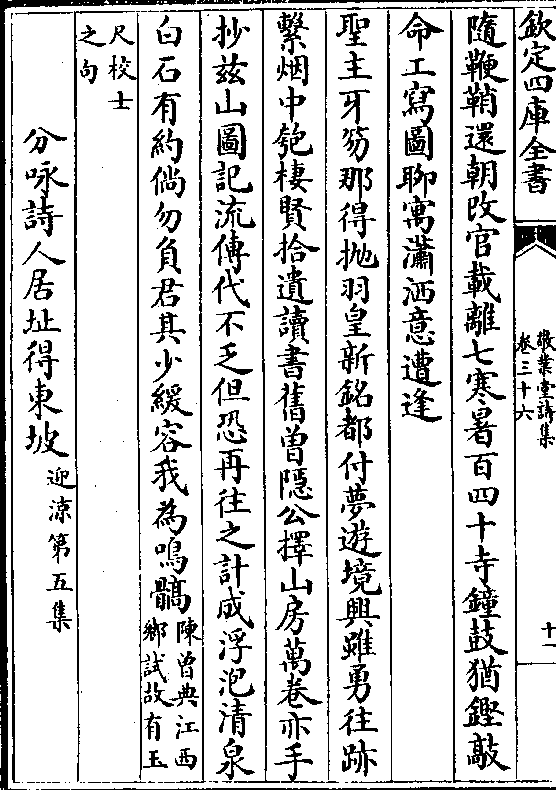 欽定四庫全書
敬業堂詩集
卷三十六
十一
隨鞭鞘還朝改官載離七寒暑百四十寺鐘鼓猶鏗敲
命工寫圖聊寓瀟洒意遭逢
聖主牙笏那得拋羽皇新銘都付夢遊境興雖勇往跡
繫烟中匏棲賢拾遺讀書舊曾隱公擇山房萬卷亦手
抄兹山圖記流傳代不乏但恐再往之計成浮泡清泉
白石有約倘勿負君其少緩容我為鳴髇
陳曾典江西
鄉試故有玉
尺校士
之句
分咏詩人居址得東坡
迎涼第五集